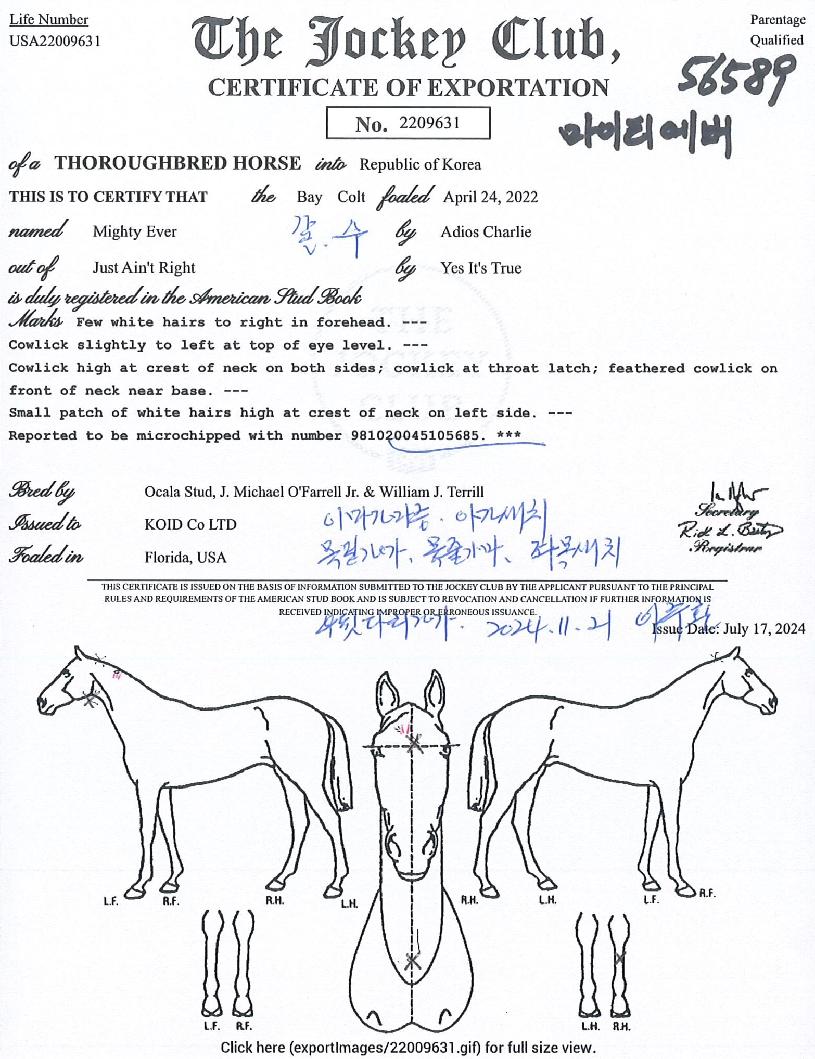 Life Number
USA22009631
The Jockey Club,
Parentage
Qualified
CERTIFICATE OF EXPORTATION
56589
No. 2209631
마이티에버
of a THOROUGHBRED HORSE into Republic of Korea
THIS IS TO CERTIFY THAT the Bay Colt foaled April 24, 2022
named Mighty Ever 갈. 수 by Adios Charlie
out of Just Ain't Right by Yes It's True
is duly registered in the American Stud Book
Marks Few white hairs to right in forehead. ---
Cowlick slightly to left at top of eye level. ---
Cowlick high at crest of neck on both sides; cowlick at throat latch; feathered cowlick on
front of neck near base. ---
Small patch of white hairs high at crest of neck on left side. ---
Reported to be microchipped with number 981020045105685. ***
THE JOCKEY CLUB
Bred by Ocala Stud, J. Michael O'Farrell Jr. & William J. Terrill
Issued to KOID Co LTD
Foaled in Florida, USA
Secretary
Registrar
THIS CERTIFICATE IS ISSUED ON THE BASIS OF INFORMATION SUBMITTED TO THE JOCKEY CLUB BY THE APPLICANT PURSUANT TO THE PRINCIPAL
RULES AND REQUIREMENTS OF THE AMERICAN STUD BOOK AND IS SUBJECT TO REVOCATION AND CANCELLATION IF FURTHER INFORMATION IS
RECEIVED INDICATING IMPROPER OR ERRONEOUS ISSUANCE.
2024.11.21
Issue Date: July 17, 2024
L.F. R.F. R.H. L.H. R.H. L.H. L.F. R.F.
L.F. R.F. L.H. R.H.
Click here (exportImages/22009631.gif) for full size view.